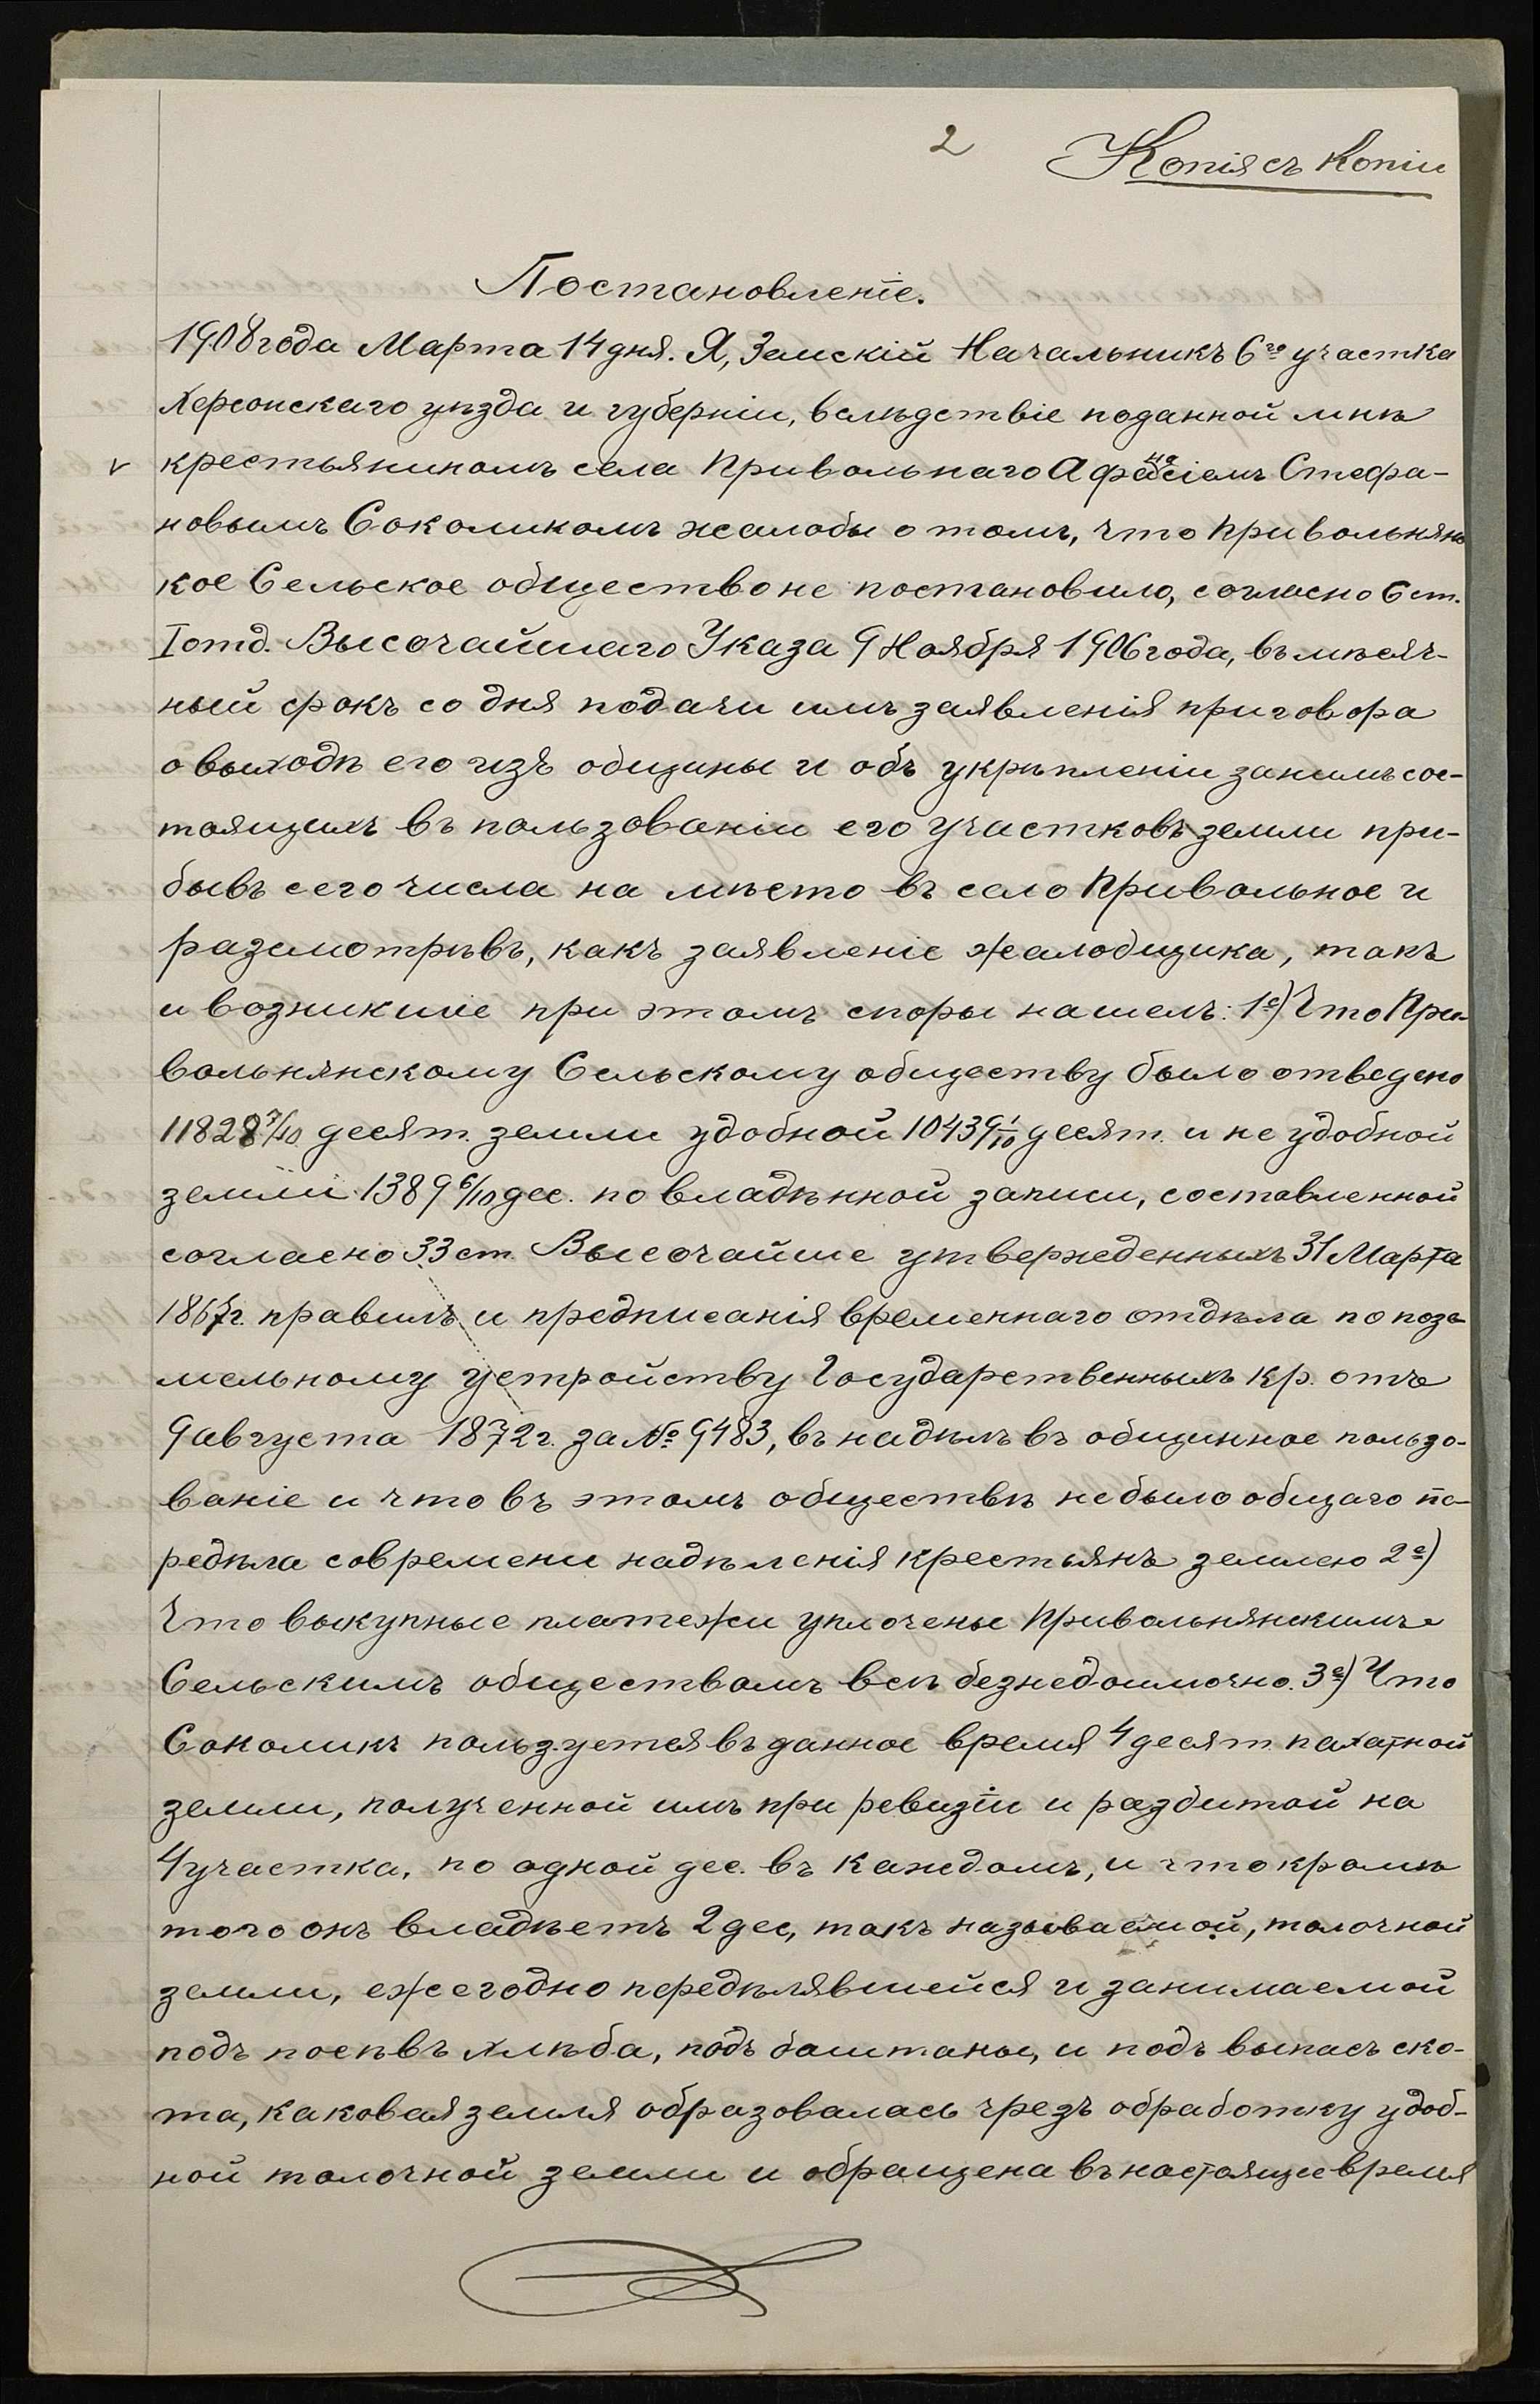 2
Копія съ копіи
Постановленіе.
1908 года Марта 14 дня. Я, Земскій Начальникъ 6го участка
Херсонскаго уѣзда и губерніи, вслѣдствіе поданной мнѣ
v крестьяниномъ села Привольнаго Афанасіемъ Стефа-
новымъ Соколикомъ жалобы о томъ, что Привольнянс
кое Сельское общество не постановило, согласно 6 ст.
I отд. Высочайшаго Указа 9 Ноября 1906 года, въ мѣсяч-
ный срокъ со дня подачи имъ заявленія приговора
о выходѣ его изъ общины и объ укрѣпленіи за нимъ сос-
тоящихъ въ пользованіи его участковъ земли при-
бывъ сего числа на мѣсто въ село Привольное и
разсмотрѣвъ, какъ заявленіе жалобщика, такъ
и возникшіе при этомъ споры нашелъ: 1е) Что При-
вольнянскому Сельскому обществу было отведено
11828 7/10 десят. земли удобной 10439 1/10 десят. и не удобной
земли 1389 6/10 дес. по владѣнной записи, составленной
согласно 33 ст. Высочайше утвержденныхъ 31 Марта
1867 г. правилъ и предписанія временнаго отдѣла по позе
мельному устройству Государственныхъ кр. отъ
9 августа 1872 г. за № 9483, въ надѣлъ въ общинное пользо-
ваніе и что въ этомъ обществѣ не было общаго пе-
редѣла современи надѣленія крестьянъ землею 2е)
Что выкупные платежи уплочены Привольнянскимъ
Сельскимъ обществомъ всѣ безнедоимочно. 3е) Что
Соколикъ пользуется въ данное время 4 десят. пахатной
земли, полученной имъ при ревизіи и разбитой на
4 участка, по одной дес. въ каждомъ, и что кромѣ
того онъ владѣетъ 2 дес, такъ называемой, толочной
земли, ежегодно передѣлявшейся и занимаемой
подъ посѣвъ хлѣба, подъ баштаны, и подъ выпасъ ско-
та, каковая земля образовалась чрезъ обработку удоб-
ной толочной земли и обращена въ настоящее время